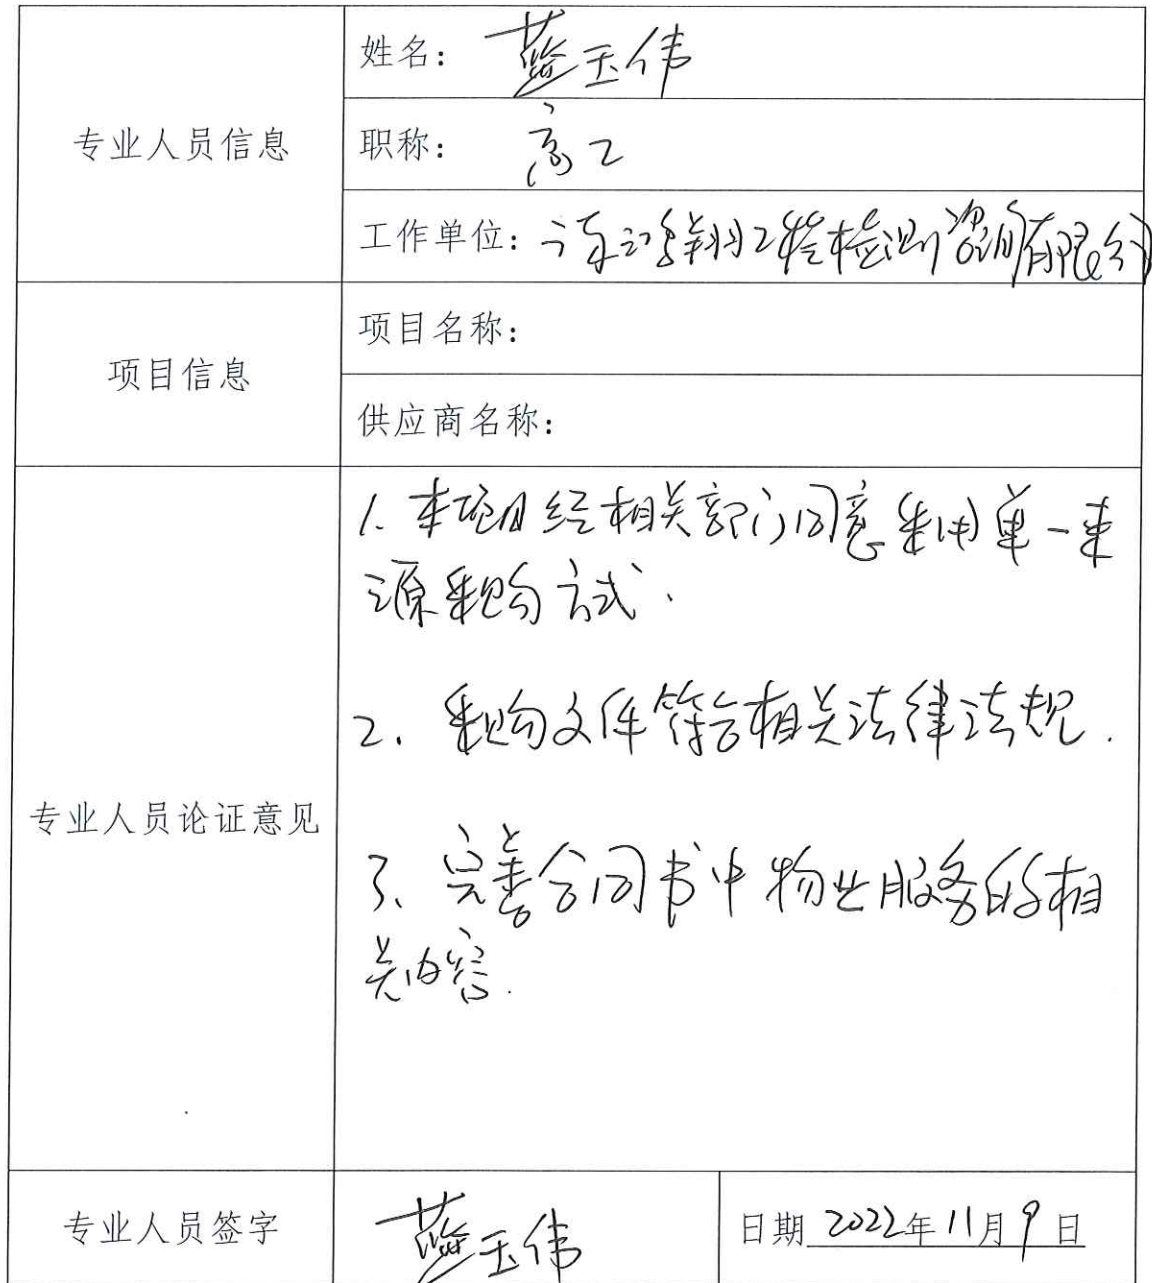 专业人员信息
姓名: 蓝玉伟
职称: 高工
工作单位: 工程检测咨询有限公
项目信息
项目名称:
供应商名称:
专业人员论证意见
1. 本项目经相关部门同意采用单一来
源采购方式.
2. 采购文件符合相关法律法规.
3. 完善合同书中物业服务的相
关内容.
专业人员签字
蓝玉伟
日期 2022年11月9日